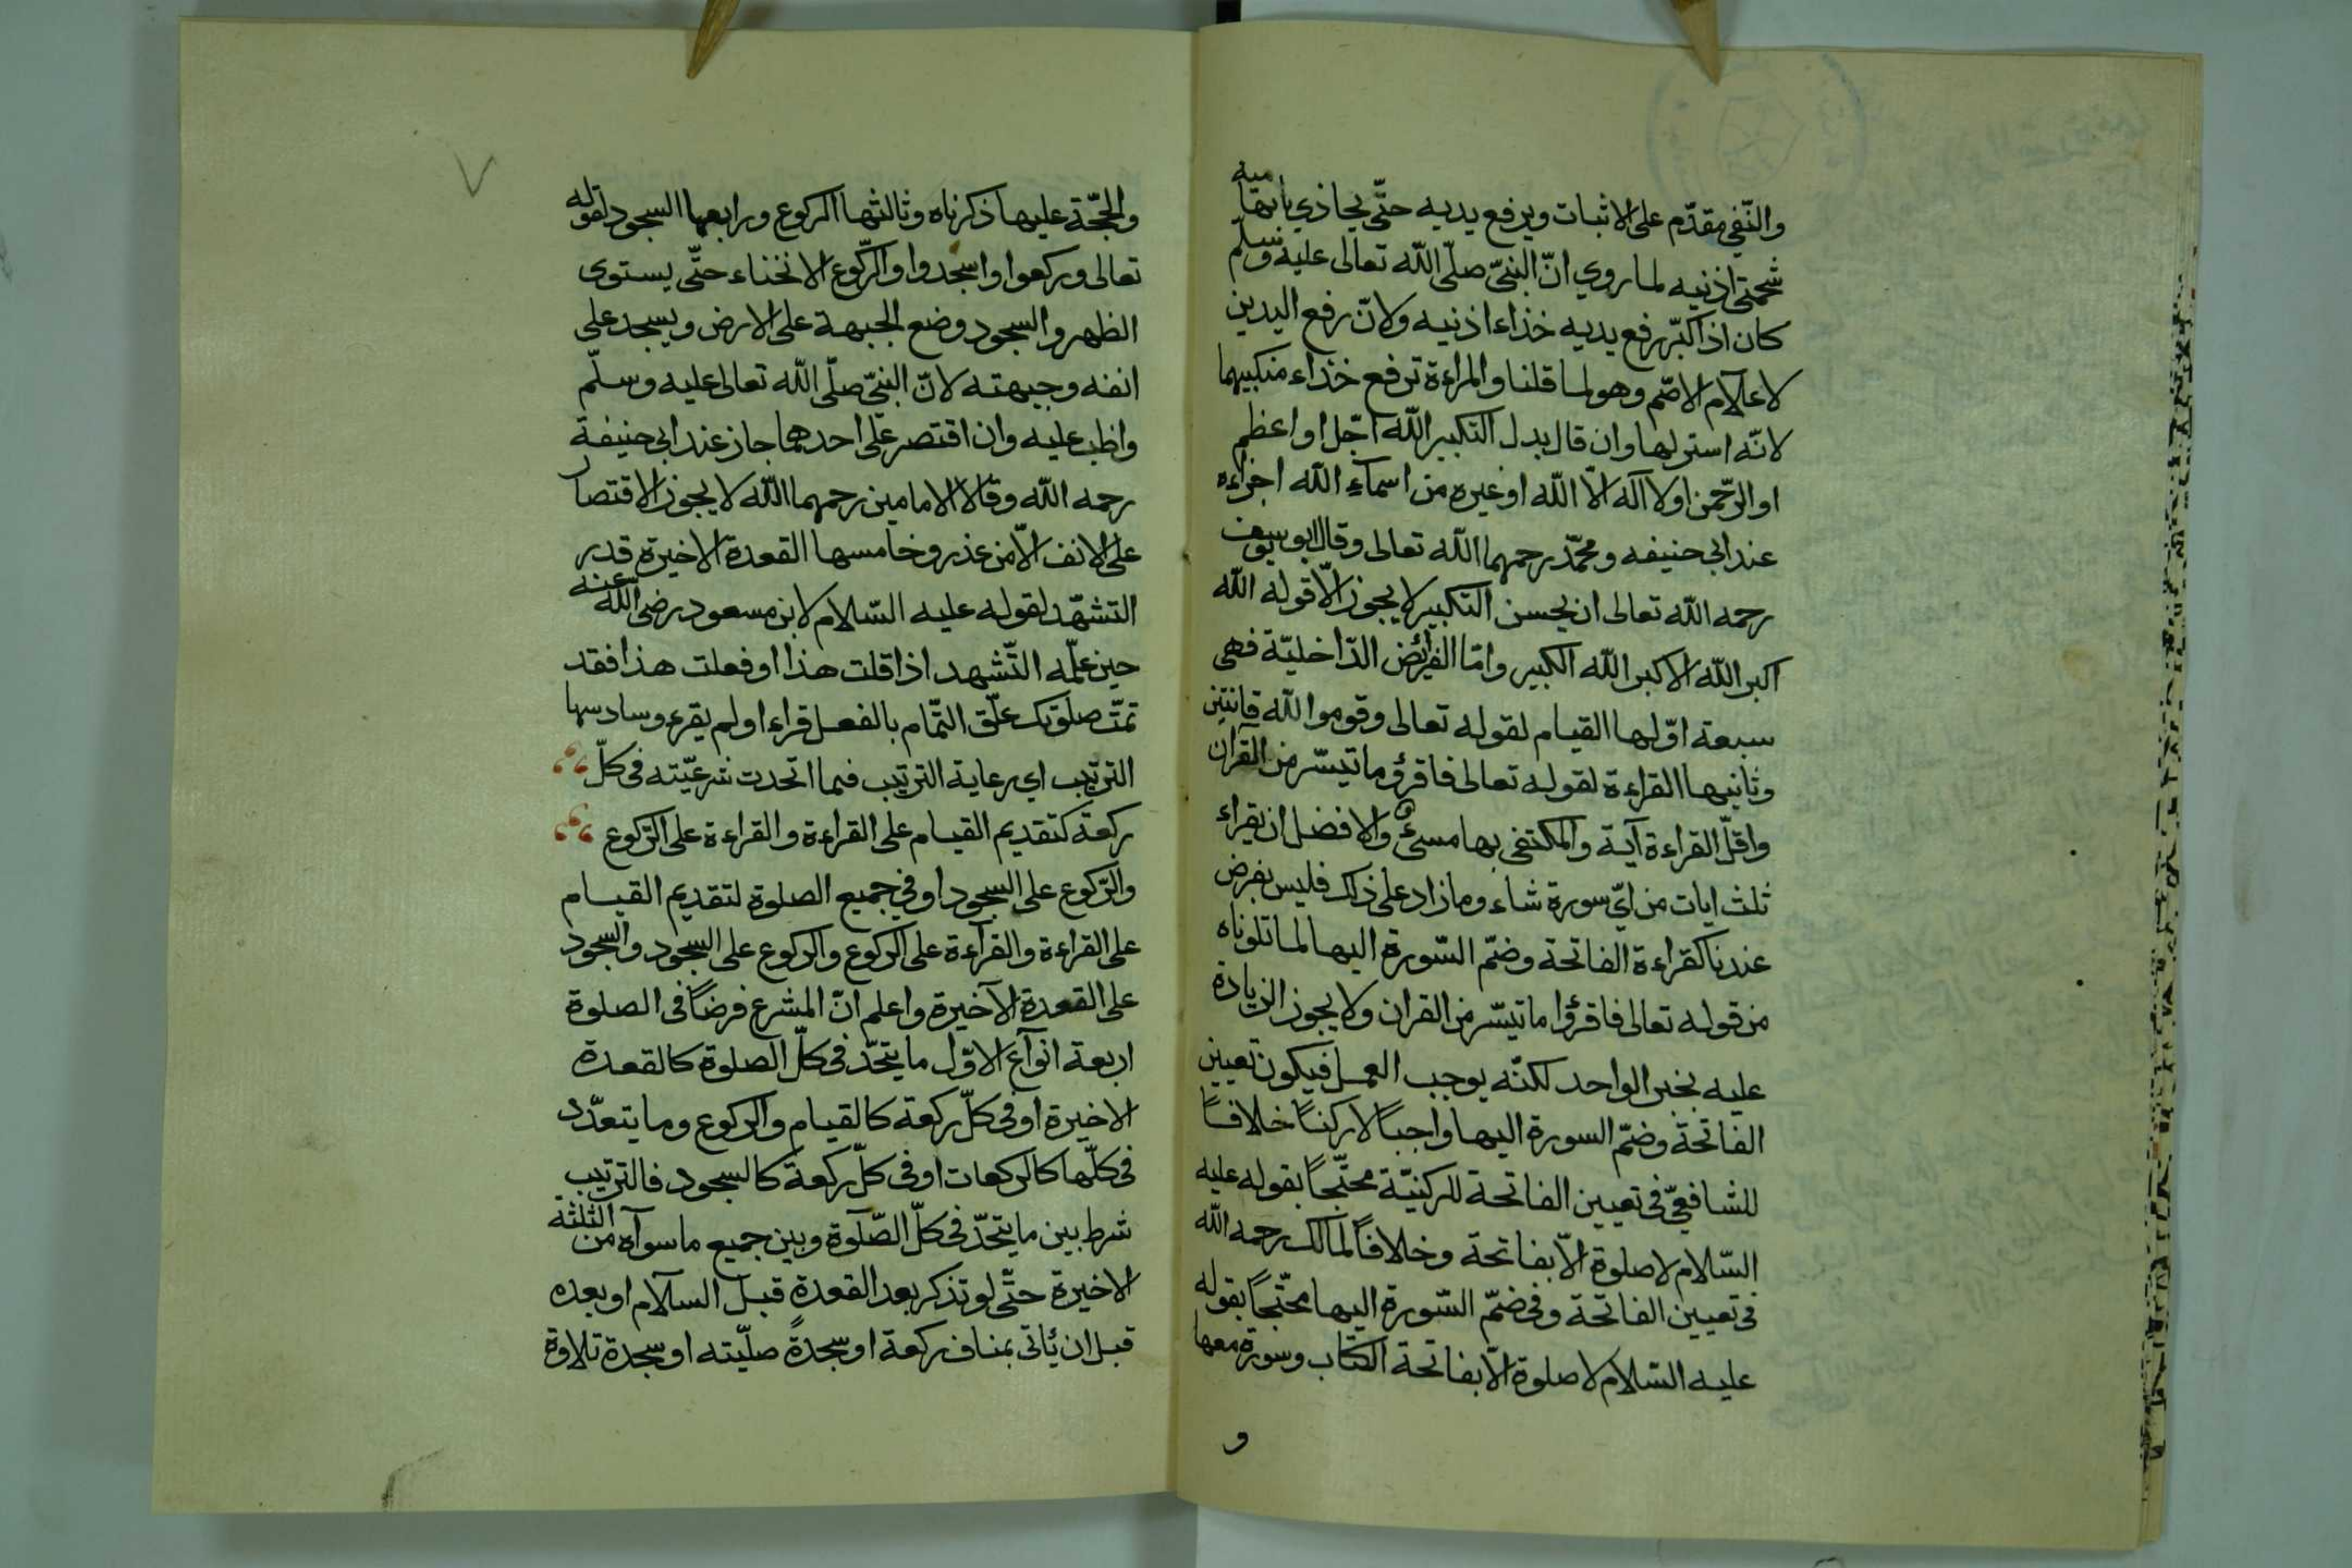 والنّفي مقدّم على الاثبات ويرفع يديه حتّى يحاذي بابهاميه
شحمتي اذنيه لما روي انّ النبيّ صلّى اللّه تعالى عليه وسلّم
كان اذا كبّر رفع يديه خذاء اذنيه ولانّ رفع اليدين
لاعلام الاصّم وهو لما قلنا والمراءة ترفع خذاء منكبيهما
لانّه استر لها وان قال بدل التكبير اللّه اجّل او اعظم
او الرّحمن او لا اله الاّ اللّه او غيره من اسماء اللّه اجزاءه
عند ابى حنيفه ومحمّد رحمهما اللّه تعالى وقال ابو يوسف
رحمه اللّه تعالى ان يحسن التكبير لا يجوز الاّ قوله اللّه
اكبر اللّه الاكبر اللّه الكبير وامّا الفرائض الدّاخليّة فهى
سبعة اوّلها القيام لقوله تعالى وقوموا للّه قانتين
وثانيها القراءة لقوله تعالى فاقرؤ ما تيسّر من القران
واقلّ القراءة آية والمكتفى بها مسئ والافضل ان يقراء
ثلث ايات من ايّ سورة شاء وما زاد على ذلك فليس بفرض
عندنا كقراءة الفاتحة وضمّ السّورة اليها لما تلوناه
من قوله تعالى فاقرؤا ما تيسّر من القران ولا يجوز الزيادة
عليه بخبر الواحد لكنّه يوجب العمل فيكون تعيين
الفاتحة وضمّ السورة اليها واجباً لا ركناً خلافاً
للشافعيّ فى تعيين الفاتحة للركنيّة محتّجاً بقوله عليه
السّلام لا صلوة الاّ بفاتحة وخلافاً لمالك رحمه اللّه
فى تعيين الفاتحة وفى ضمّ السّورة اليها محتّجاً بقوله
عليه السّلام لا صلوة الاّ بفاتحة الكتاب وسورة معها
و
٧
والحجّة عليها ذكرناه وثالثها الركوع ورابعها السجود لقوله
تعالى وركعوا واسجدوا والرّكوع الانخناء حتّى يستوى
الظهر والسجود وضع الجبهة على الارض ويسجد على
انفه وجبهته لانّ النبيّ صلّى اللّه تعالى عليه وسلّم
واظب عليه وان اقتصر على احدهما جاز عند ابى حنيفة
رحمه اللّه وقالا الامامين رحمهما اللّه لا يجوز الاقتصار
على الانف الاّ من عذر وخامسها القعدة الاخيرة قدر
التشهّد لقوله عليه السّلام لابن مسعود رضى اللّه عنه
حين علّمه التّشهد اذا قلت هذا او فعلت هذا فقد
تمّت صلوتك علّق التّمام بالفعل قراء او لم يقرء وسادسها
الترتيب اي رعاية الترتيب فيما اتحدت شرعيّته فى كلّ
ركعة كتقديم القيام على القراءة والقراءة على الرّكوع
والرّكوع على السجود او في جميع الصلوة لتقديم القيام
على القراءة والقراءة على الركوع والركوع على السجود والسجود
على القعدة الاخيرة واعلم انّ المشرع فرضاً فى الصلوة
اربعة انواع الاوّل ما يتحّد فى كلّ الصلوة كالقعدة
الاخيرة او فى كلّ ركعة كالقيام والركوع وما يتعدّد
فى كلّها كالركعات او فى كلّ ركعة كالسجود فالترتيب
شرط بين ما يتحّد فى كلّ الصّلوة وبين جميع ما سواه من الثلثة
الاخيرة حتّى لو تذكر بعد القعدة قبل السلام او بعده
قبل ان يأتى بمناف ركعة او سجدةً صلّيته او سجدة تلاوة